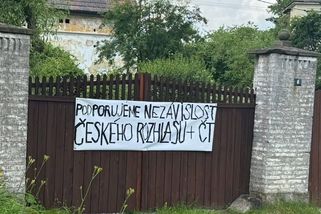 PODPORUJEME NEZÁVISLOST
ČESKÉHO ROZHLASU + ČT